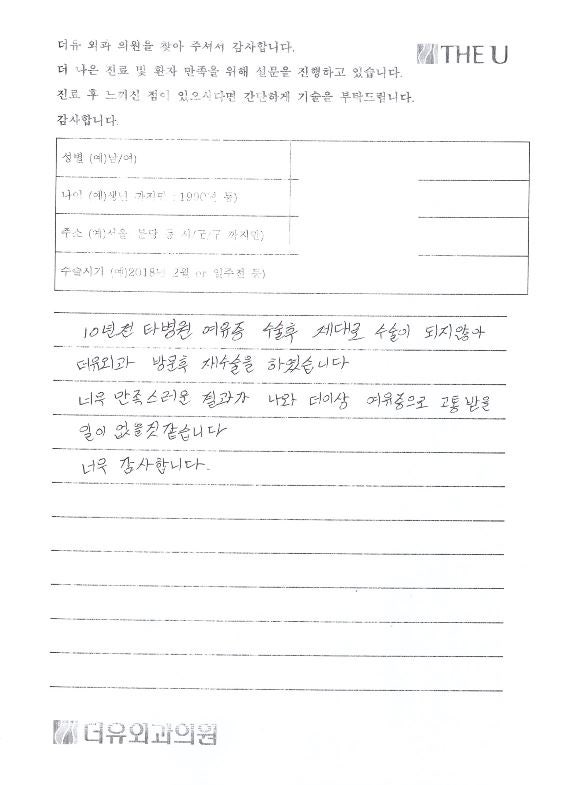 더유 외과 의원을 찾아 주셔서 감사합니다.
THE U
더 나은 진료 및 환자 만족을 위해 설문을 진행하고 있습니다.
진료 후 느끼신 점이 있으시다면 간단하게 기술을 부탁드립니다.
감사합니다.
성별 (예)남/여)
나이 (예)생년 까지만 : 1990년 등)
주소 (예)서울 분당 등 시/군/구 까지만)
수술시기 (예)2018년 2월 or 일주전 등)
10년전 타병원 여유증 수술후 제대로 수술이 되지않아
더유외과 방문후 재수술을 하였습니다
너무 만족스러운 결과가 나와 더이상 여유증으로 고통받을
일이 없을것같습니다
너무 감사합니다.
더유외과의원